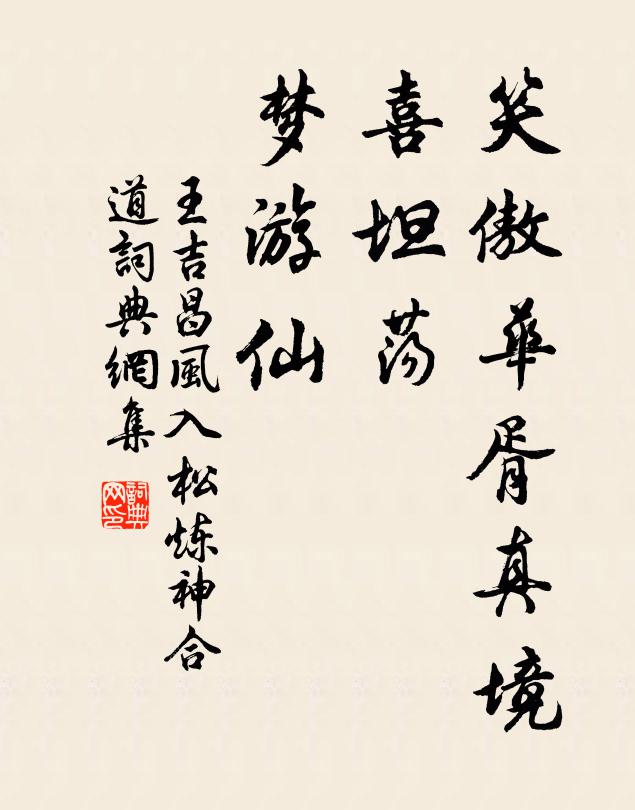 笑傲華胥真境
喜坦荡
梦游仙
王吉昌風入松炼神合
道詞典網集
詞典
网印